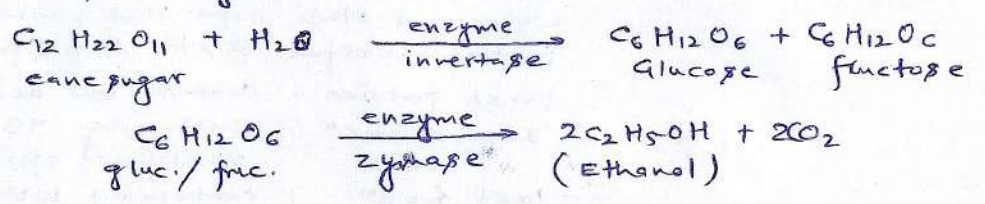 C12 H22 O11 + H2O enzyme invertase C6 H12 O6 + C6 H12 O6
cane sugar Glucose fructose
C6 H12 O6 enzyme zymase 2C2 H5OH + 2CO2
gluc./ fruc. (Ethanol)